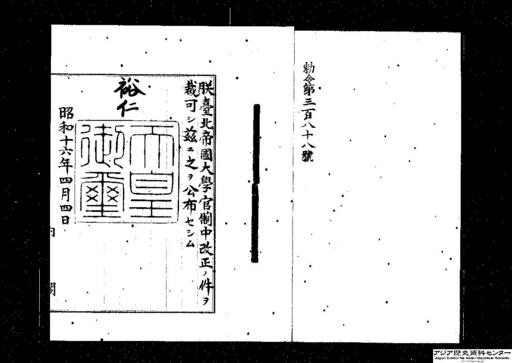 勅令第三百八十八號
朕臺北帝國大學官制中改正ノ件ヲ
裁可シ茲ニ之ヲ公布セシム
裕仁
天皇
御璽
昭和十六年四月四日
内
閣
アジア歴史資料センター
Japan Center for Asian Historical Records